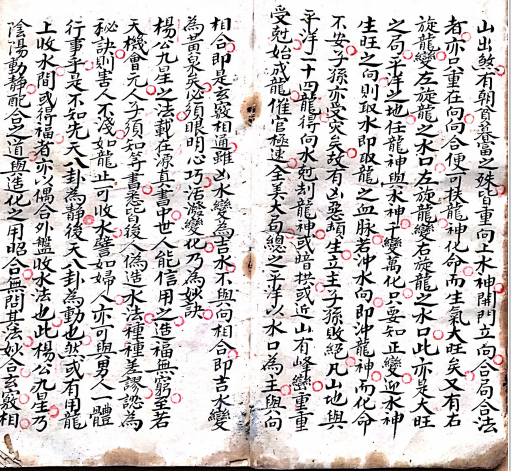 山出煞有朝貧暮富之殊皆重向上水神開門立向合局合法
者亦只重在向向合便可扶龍神化命而生氣大旺矣又有右
旋龍變左旋龍之水口左旋龍變右旋龍之水口此亦是大旺
之局平洋之地任龍神與水神千變萬化只要知正變迎水神
生旺之向則取水即取龍之血脉若沖水向即沖龍神而化命
不安子孫亦受灾矣故有凶惡類生立主子孫敗絕凡山地與
平洋二十四龍得向水尅刦龍神或暗拱或近山有峰巒重重
受尅始成龍催官極速全美大局總之平洋以水口為主與向
相合即是玄竅相通雖凶水變為吉水不與向相合即吉水變
為黃泉矣必須眼明心巧活潑變化乃為妙訣
楊公九星之法載在源真書中世人能信用之造福無窮至若
天機會元人子須知等書悉皆後人偽造水法種種差謬認為
秘訣則害人不淺如龍止可收水譬如婦人亦可與男人一體
行事乎是不知先天八卦為靜後天八卦為動也然或有用龍
上收水間或得福者亦以偶合外盤收水法也此楊公九星乃
陰陽動靜配合之道與造化之用昭合無間其法妙合玄竅相